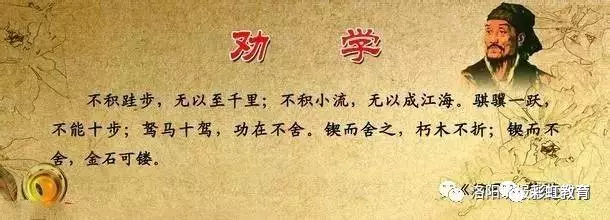 劝 学
不积跬步，无以至千里；不积小流，无以成江海。骐骥一跃，
不能十步；驽马十驾，功在不舍。锲而舍之，朽木不折；锲而不
舍，金石可镂。
洛阳 彩虹教育